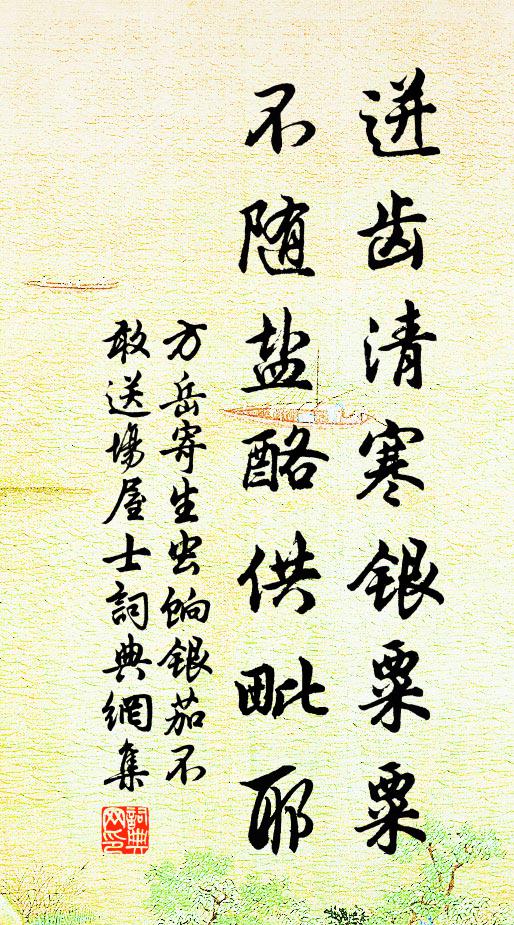 迸齿清寒银粟粟
不随盐酪供毗耶
方岳寄生虫饷银茄不
敢送場屋士詞典網集
詞典网印